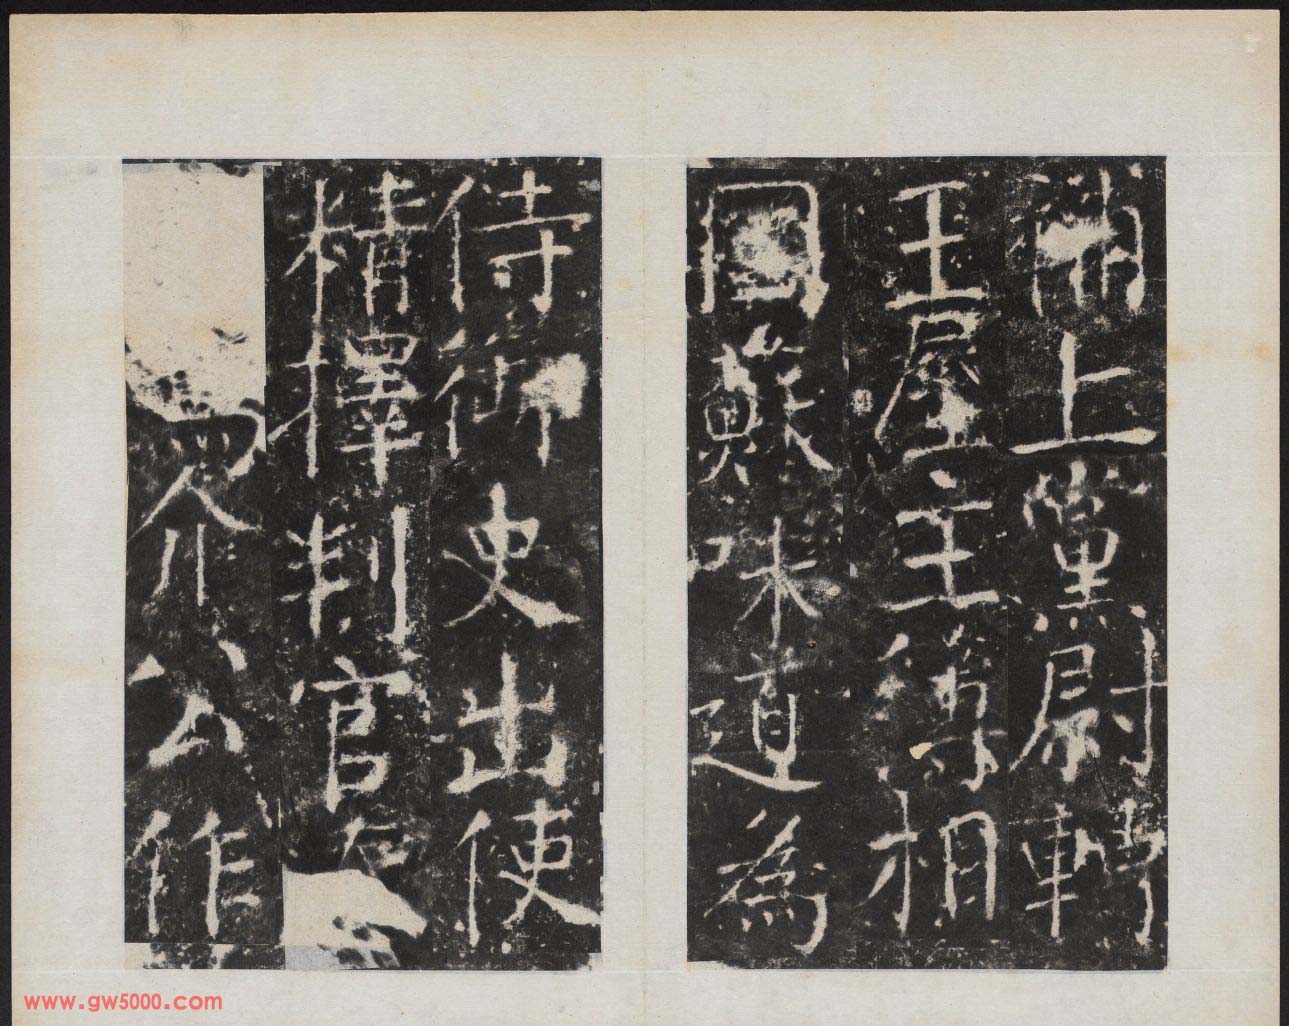 上黨尉轉
王屋主簿相
國蘇味道為
侍御史出使
精擇判官奏
介公作
www.gw5000.com